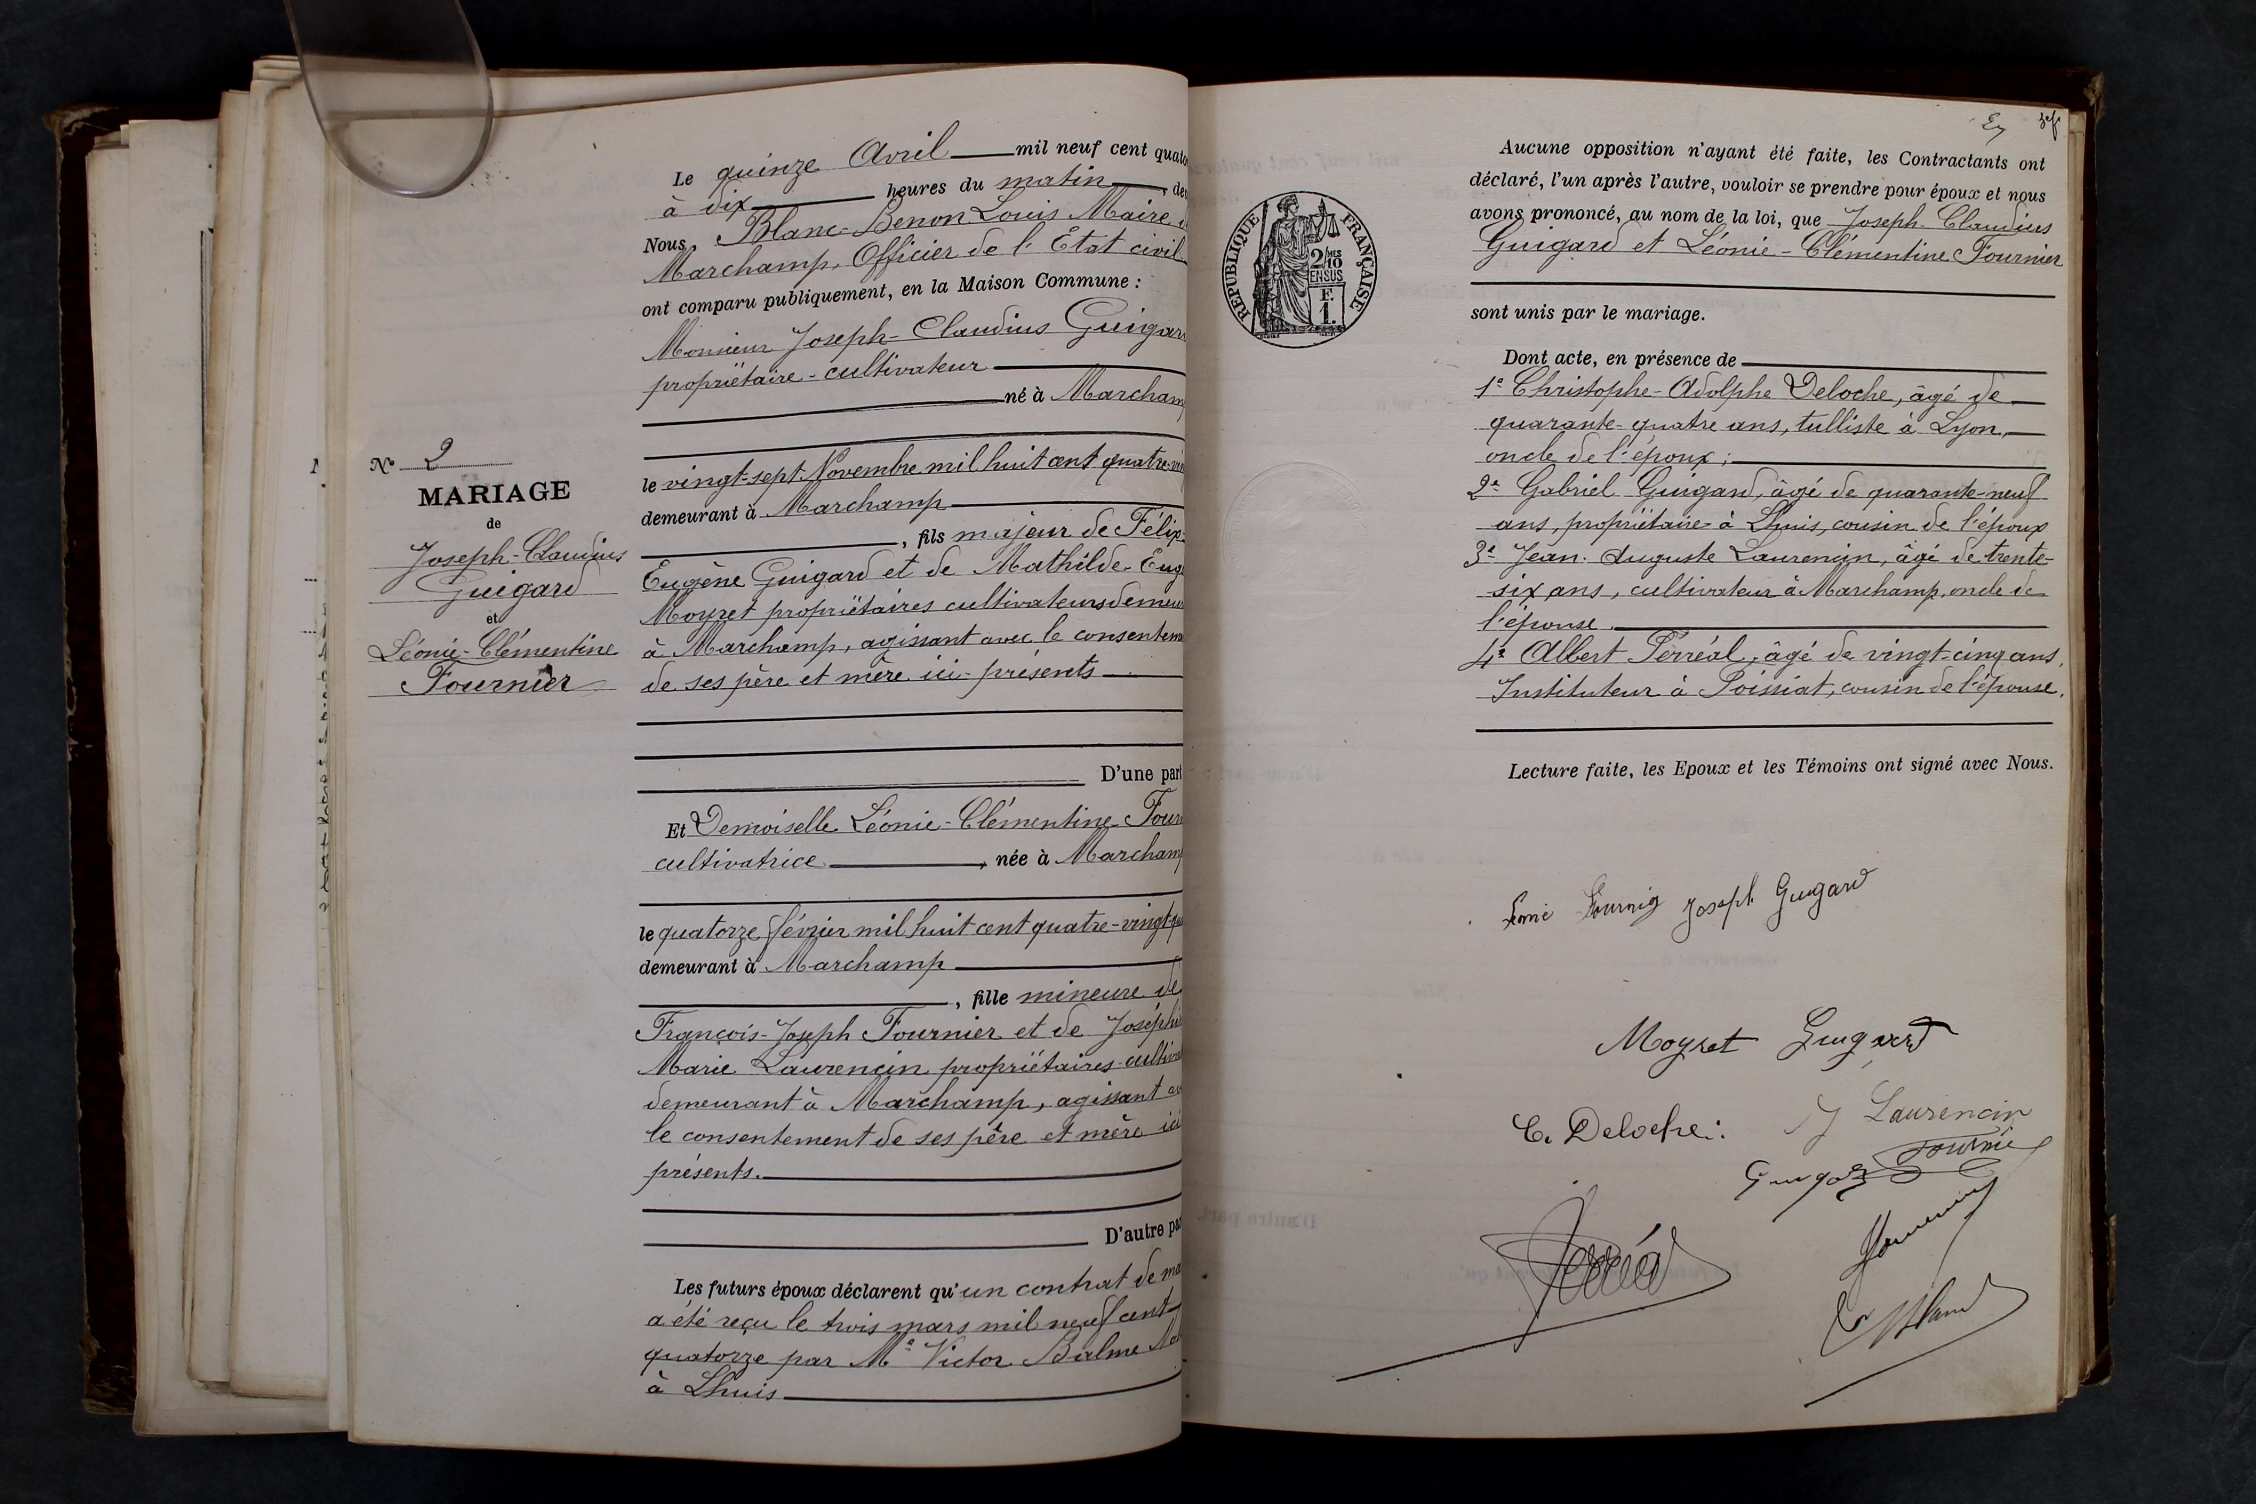 Le quinze Avril mil neuf cent quato
à dix heures du matin, de
Nous, Blanc-Benon Louis Maire d
Marchamp, Officier de l'Etat civil
ont comparu publiquement, en la Maison Commune :
Monsieur Joseph-Claudius Guigar
propriétaire-cultivateur
né à Marcham
le vingt-sept Novembre mil huit cent quatre-vin
demeurant à Marchamp
, fils majeur de Félix-
Eugène Guigard et de Mathilde-Eug
Moyret propriétaires cultivateurs demeur
à Marchamp, agissant avec le consentem
de ses père et mère ici présents
D'une part
Et Demoiselle Léonie-Clémentine Four
cultivatrice, née à Marcham
le quatorze février mil huit cent quatre-vingt-
demeurant à Marchamp
, fille mineure de
François-Joseph Fournier et de Joséphi
Marie Laurencin propriétaires-cultiva
demeurant à Marchamp, agissant av
le consentement de ses père et mère ici
présents.
D'autre pa
Les futurs époux déclarent qu'un contrat de ma
a été reçu le trois mars mil neuf cent
quatorze par Me Victor Balme
à Lhuis
No 2
MARIAGE
de
Joseph-Claudius
Guigard
et
Léonie-Clémentine
Fournier
RÉPUBLIQUE FRANÇAISE
2/10MES
EN SUS
F.
1.
Aucune opposition n'ayant été faite, les Contractants ont
déclaré, l'un après l'autre, vouloir se prendre pour époux et nous
avons prononcé, au nom de la loi, que Joseph-Claudius
Guigard et Léonie-Clémentine Fournier
sont unis par le mariage.
Dont acte, en présence de
1e Christophe-Adolphe Deloche, âgé de
quarante-quatre ans, tulliste à Lyon,
oncle de l'époux ;
2e Gabriel Guigard, âgé de quarante-neuf
ans, propriétaire à Lhuis, cousin de l'époux
3e Jean-Auguste Laurencin, âgé de trente-
six ans, cultivateur à Marchamp, oncle de
l'épouse
4e Albert Perréal, âgé de vingt-cinq ans,
Instituteur à Poissiat, cousin de l'épouse.
Lecture faite, les Epoux et les Témoins ont signé avec Nous.
Fournier Joseph Guigard
Moyret Guigard
C. Deloche
J Laurencin
Fournie
Guigard
Perréal
Blanc